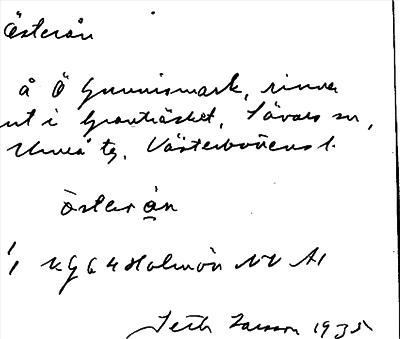 Österån
å Ö Gunnismark, rinner
ut i Granträsket, Sävars sn,
Umeå tg, Västerbottens l.
Österån
1/1 kg 64 Holmön NV A1
Seth Larsson 1935